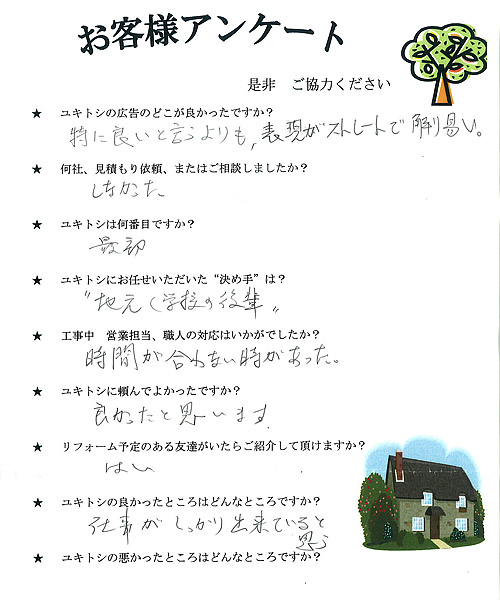 お客様アンケート
是非 ご協力ください
★ ユキトシの広告のどこが良かったですか？
特に良いと言うよりも,表現がストレートで解り易い。
★ 何社、見積もり依頼、またはご相談しましたか？
しなかった
★ ユキトシは何番目ですか？
最初
★ ユキトシにお任せいただいた“決め手”は？
"地元（学校の後輩"
★ 工事中 営業担当、職人の対応はいかがでしたか？
時間が合わない時があった。
★ ユキトシに頼んでよかったですか？
良かったと思います
★ リフォーム予定のある友達がいたらご紹介して頂けますか？
はい
★ ユキトシの良かったところはどんなところですか？
仕事がしっかり出来ていると
思う
★ ユキトシの悪かったところはどんなところですか？